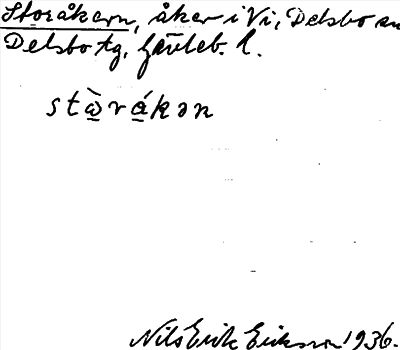 Storåkern, åker i Vi, Delsbo sn
Delsbo tg, Gävleb. l.
stὼ̠rá̠kən
Nils Erik Eriksson 1936.